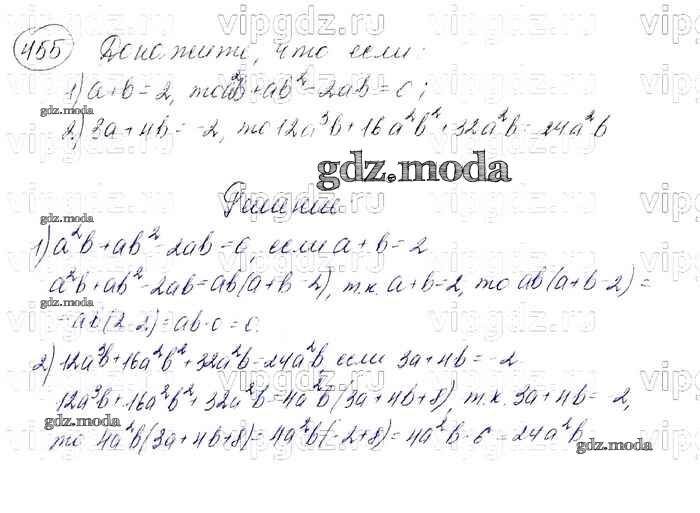 455 Докажите, что если:
1) a+b=2, то a²b+ab²-2ab=0;
2) 3a+4b=-2, то 12a³b+16a²b²+32a²b=24a²b
gdz.moda
Решение:
1) a²b+ab²-2ab=0, если a+b=2
a²b+ab²-2ab=ab(a+b-2), т.к. a+b=2, то ab(a+b-2)=
=ab(2-2)=ab·0=0.
2) 12a³b+16a²b²+32a²b=24a²b если 3a+4b=-2
12a³b+16a²b²+32a²b=4a²b(3a+4b+8), т.к. 3a+4b=-2,
то 4a²b(3a+4b+8)=4a²b(-2+8)=4a²b·6=24a²b